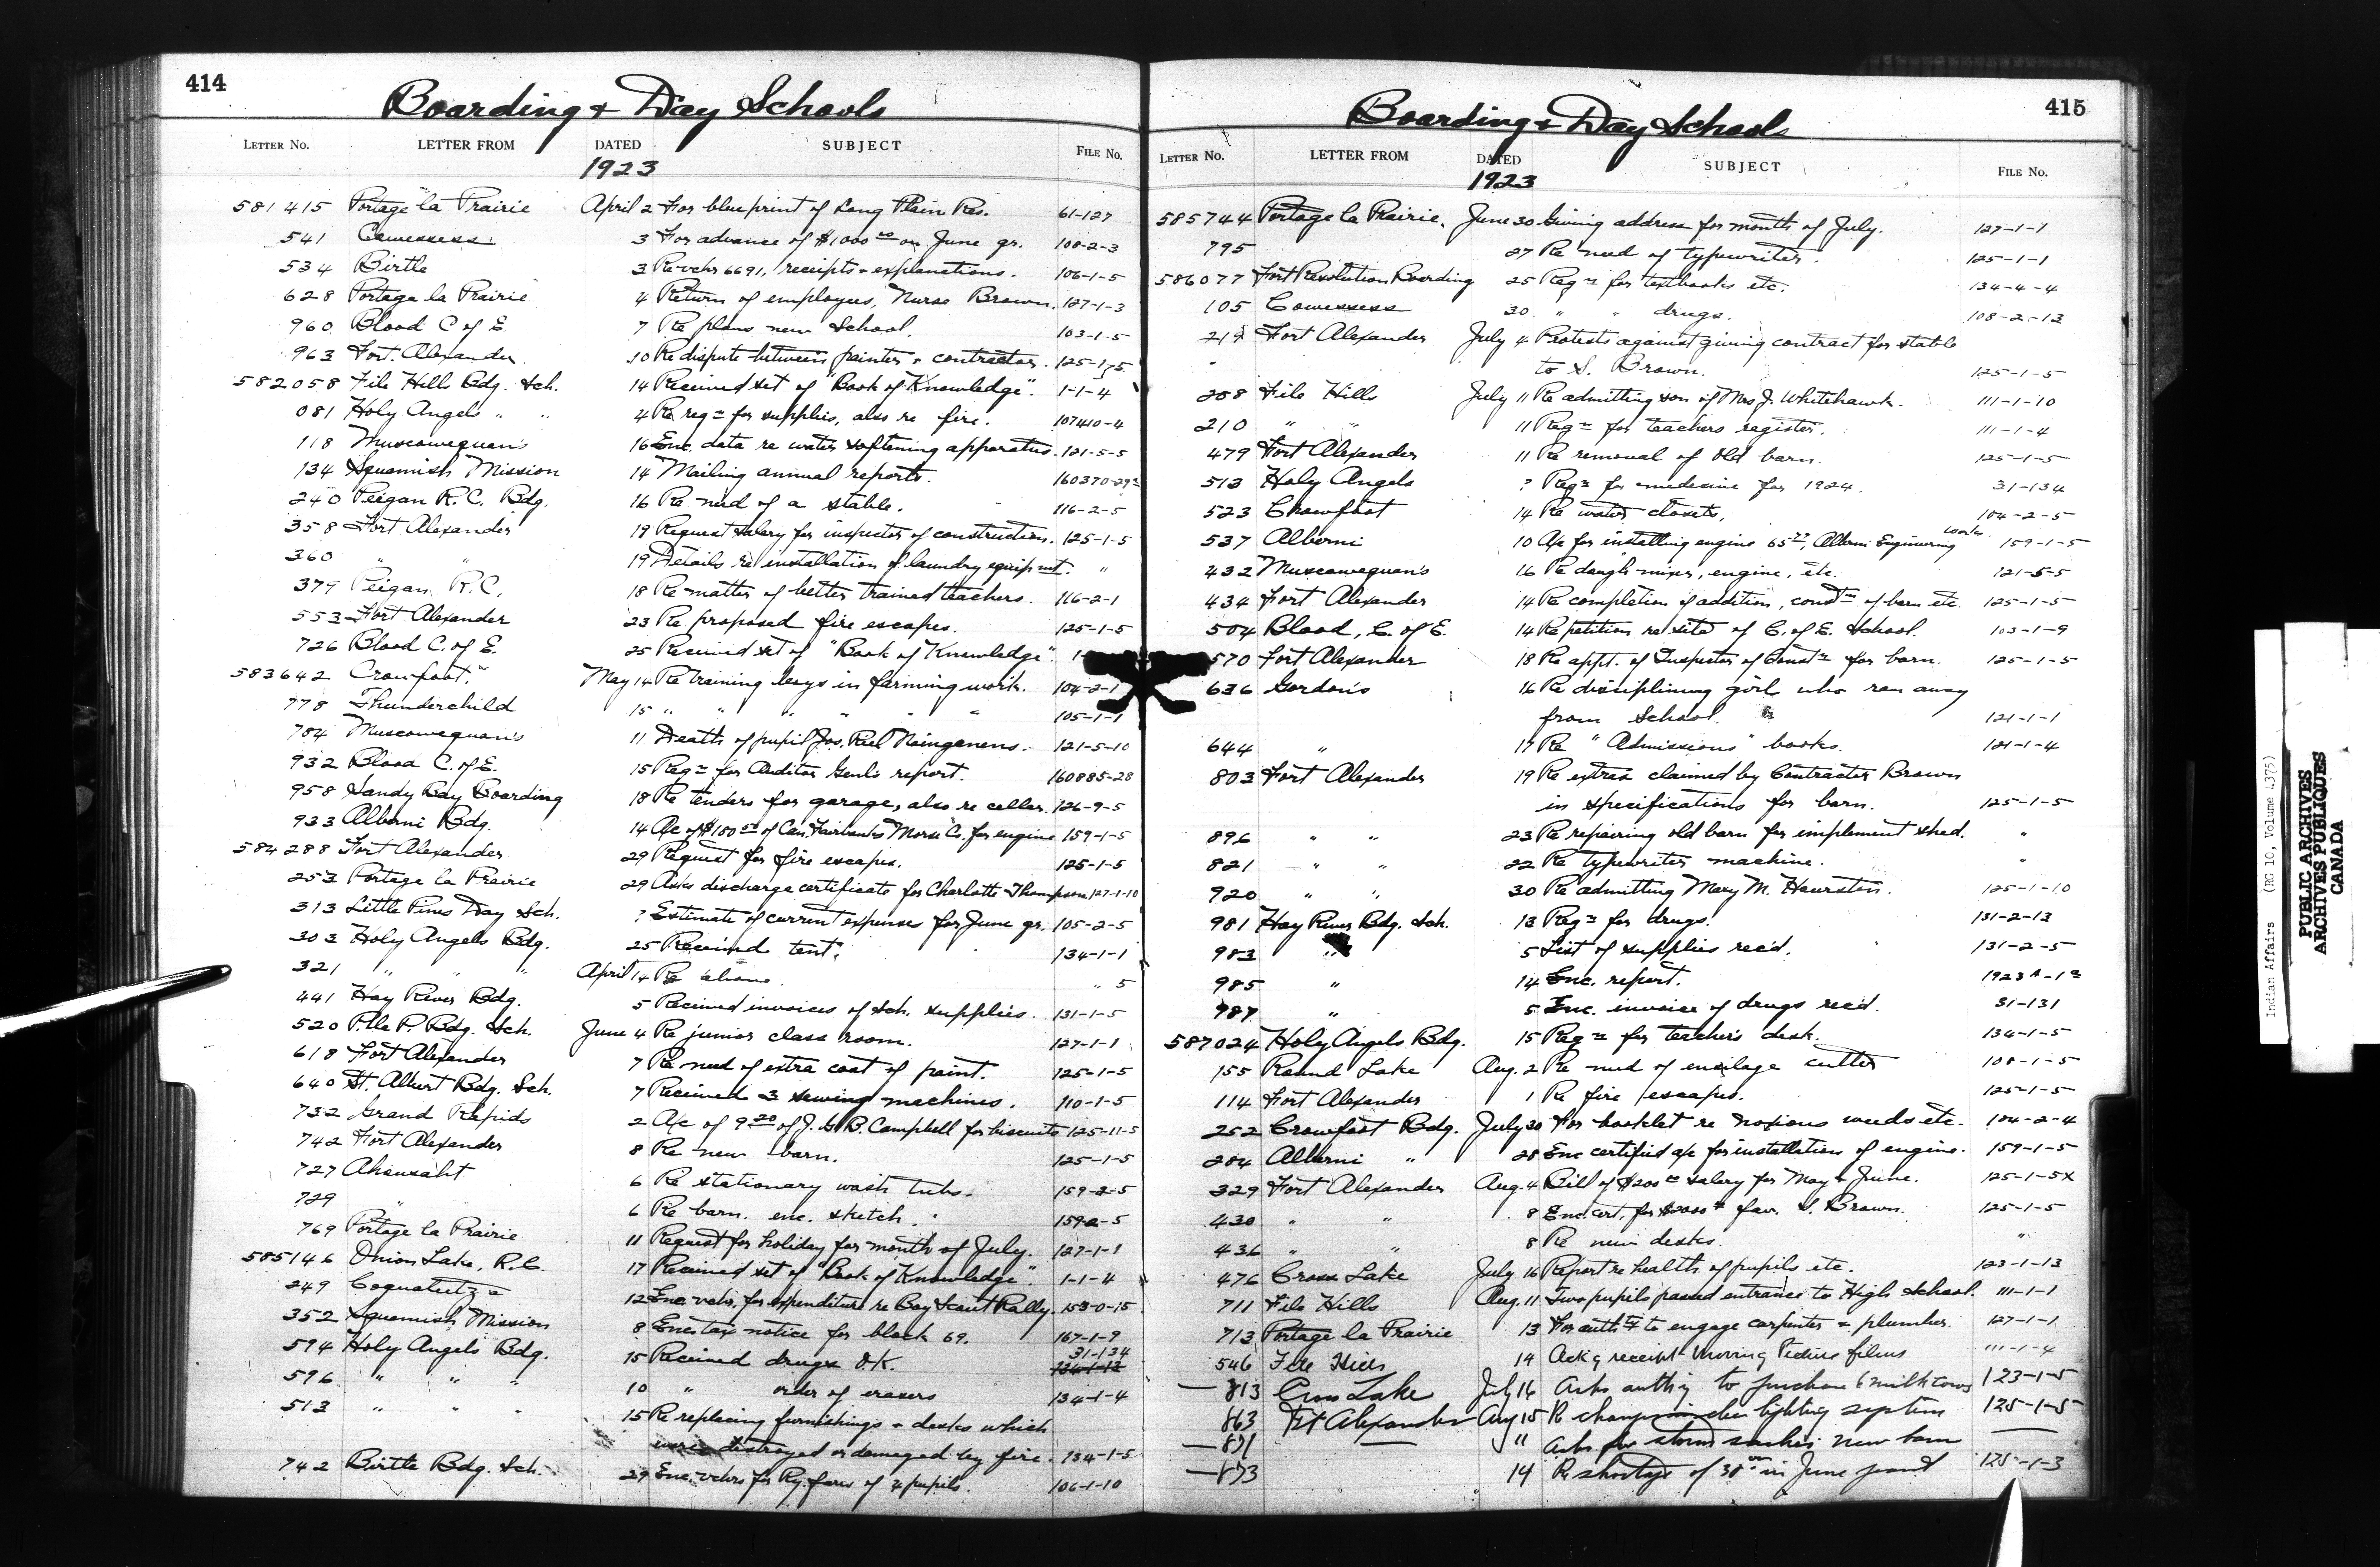 414
Boarding & Day Schools
LETTER No. LETTER FROM DATED SUBJECT FILE No.
1923
581415 Portage la Prairie April 2 For blueprint of Long Plain Res. 61-127
541 Cowessess 3 For advance of $1000.00 on June qr. 108-2-3
534 Birtle 3 Re vchr 6691, receipts & explanations. 106-1-5
628 Portage la Prairie 4 Return of employees, Nurse Brown. 127-1-3
960 Blood C of E. 7 Re plans new School. 103-1-5
963 Fort Alexander 10 Re dispute between painter & contractor. 125-1-5
582058 File Hills Bdg. Sch. 14 Received set of "Book of Knowledge". 1-1-4
081 Holy Angels " " 4 Re reqn for supplies, also re fire. 107410-4
118 Muscowequan's 16 Enc. data re water softening apparatus. 121-5-5
134 Squamish Mission 14 Mailing annual reports. 160370-29
240 Peigan R.C. Bdg. 16 Re need of a stable. 116-2-5
358 Fort Alexander 19 Request salary for inspector of construction. 125-1-5
360 " " 19 Details re installation of laundry equipmt. "
379 Peigan R.C. 18 Re matter of better trained teachers. 116-2-1
553 Fort Alexander 23 Re proposed fire escapes. 125-1-5
726 Blood C. of E. 25 Received set of "Book of Knowledge".
583642 Crowfoot. May 14 Re training boys in farming work. 104-2-1
778 Thunderchild 15 " " " " " " 105-1-1
784 Muscowequan's 11 Death of pupil Jos. Riel 121-5-10
932 Blood C. of E. 15 Reqn for Auditor Genl's report. 160885-28
958 Sandy Bay Boarding 18 Re tenders for garage, also re cellar. 126-9-5
933 Alberni Bdg. 14 A/c of of Can. Fairbanks Morse Co. for engine 159-1-5
584288 Fort Alexander 29 Request for fire escapes. 125-1-5
253 Portage la Prairie 29 Asks discharge certificate for Charlotte Thompson 127-1-10
313 Little Pines Day Sch. ? Estimate of current expenses for June qr. 105-2-5
303 Holy Angels Bdg. 25 Received tent. 134-1-1
321 " " " April 14 Re above. " 5
441 Hay River Bdg. 5 Received invoices of sch. supplies. 131-1-5
520 P. la P. Bdg. Sch. June 4 Re junior class room. 127-1-1
618 Fort Alexander 7 Re need of extra coat of paint. 125-1-5
640 St. Albert Bdg. Sch. 7 Received 3 sewing machines. 110-1-5
732 Grand Rapids 2 A/c of 9.20 of J. G. B. Campbell for biscuits 125-11-5
742 Fort Alexander 8 Re new barn. 125-1-5
727 Ahousaht 6 Re stationary wash tubs. 159-2-5
729 " 6 Re barn. enc. sketch. 159-2-5
769 Portage la Prairie 11 Request for holiday for month of July. 127-1-1
585146 Onion Lake, R.C. 17 Received set of "Book of Knowledge". 1-1-4
249 Coqualeetza 12 Enc. vchr. for expenditure re Boy Scout Rally. 153-0-15
352 Squamish Mission 8 Enc. tax notice for block 69. 167-1-9
594 Holy Angels Bdg. 15 Received drugs O.K. 31-134
596 " " " 10 " order of erasers 134-1-4
513 " " " 15 Re replacing furnishings & desks which
were destroyed or damaged by fire. 134-1-5
742 Birtle Bdg. Sch. 29 Enc. vchrs for Ry. fares of 4 pupils. 106-1-10
415
Boarding & Day Schools
LETTER No. LETTER FROM DATED SUBJECT FILE No.
1923
585744 Portage la Prairie. June 30 Giving address for month of July. 127-1-1
795 27 Re need of typewriter. 125-1-1
586077 Fort Resolution Boarding 25 Reqn for textbooks etc. 134-4-4
105 Cowessess 30 " " drugs. 108-2-13
219 Fort Alexander July 4 Protests against giving contract for stable
to S. Brown. 125-1-5
208 File Hills July 11 Re admitting son of Mrs J. Whitehawk. 111-1-10
210 " " 11 Reqn for teachers register. 111-1-4
479 Fort Alexander 11 Re removal of old barn. 125-1-5
513 Holy Angels ? Reqn for medicine for 1924. 31-134
523 Crowfoot 14 Re water closets. 104-2-5
537 Alberni 10 A/c for installing engine Alberni Engineering Works 159-1-5
432 Muscowequan's 16 Re dough mixer, engine, etc. 121-5-5
434 Fort Alexander 14 Re completion of addition, constn of barn etc. 125-1-5
504 Blood, C. of E. 14 Re petition re site of C. of E. School. 103-1-9
570 Fort Alexander 18 Re appt. of Inspector of Constn for barn. 125-1-5
636 Gordon's 16 Re disciplining girls who ran away
from School. 121-1-1
644 " 17 Re "Admissions" books. 121-1-4
803 Fort Alexander 19 Re extras claimed by Contractor Brown
in specifications for barn. 125-1-5
896 " " 23 Re repairing old barn for implement shed. "
821 " " 22 Re typewriter machine. "
920 " " 30 Re admitting Mary M. 125-1-10
981 Hay River Bdg. Sch. 13 Reqn for drugs. 131-2-13
983 " 5 List of supplies rec'd. 131-2-5
985 " 14 Enc. report.
987 " 5 Enc. invoice of drugs rec'd. 31-131
587024 Holy Angels Bdg. 15 Reqn for teacher's desk. 134-1-5
155 Round Lake Aug. 2 Re need of ensilage cutter 108-1-5
114 Fort Alexander 1 Re fire escapes. 125-1-5
252 Crowfoot Bdg. July 30 For booklet re noxious weeds etc. 104-2-4
284 Alberni " 28 Enc certified a/c for installation of engine. 159-1-5
329 Fort Alexander Aug. 4 Bill of $200.00 salary for May & June. 125-1-5x
430 " " 8 Enc. cert. for $2000.00 fav. S. Brown. 125-1-5
436 " " 8 Re new desks. "
476 Cross Lake July 16 Report re health of pupils etc. 123-1-13
711 File Hills Aug. 11 Two pupils passed entrance to High School. 111-1-1
713 Portage la Prairie 13 For authty to engage carpenter & plumber. 127-1-1
546 File Hills 14 Ack'g receipt Moving Picture films 111-1-4
813 Cross Lake July 16 Asks auth'y to purchase 6 milk cows 123-1-5
863 Ft Alexander Aug 15 Re lighting system 125-1-5
871 — " Asks for storm sashes new barn —
873 14 Re shortage of in June 125-1-3
Indian Affairs (RG 10, Volume 4375)
PUBLIC ARCHIVES
ARCHIVES PUBLIQUES
CANADA